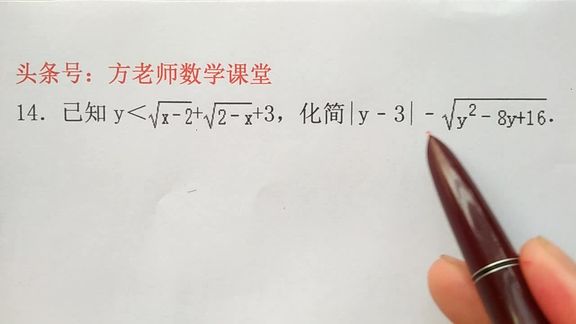 头条号：方老师数学课堂
14. 已知 y＜√x-2+√2-x+3，化简|y-3|-√y²-8y+16.